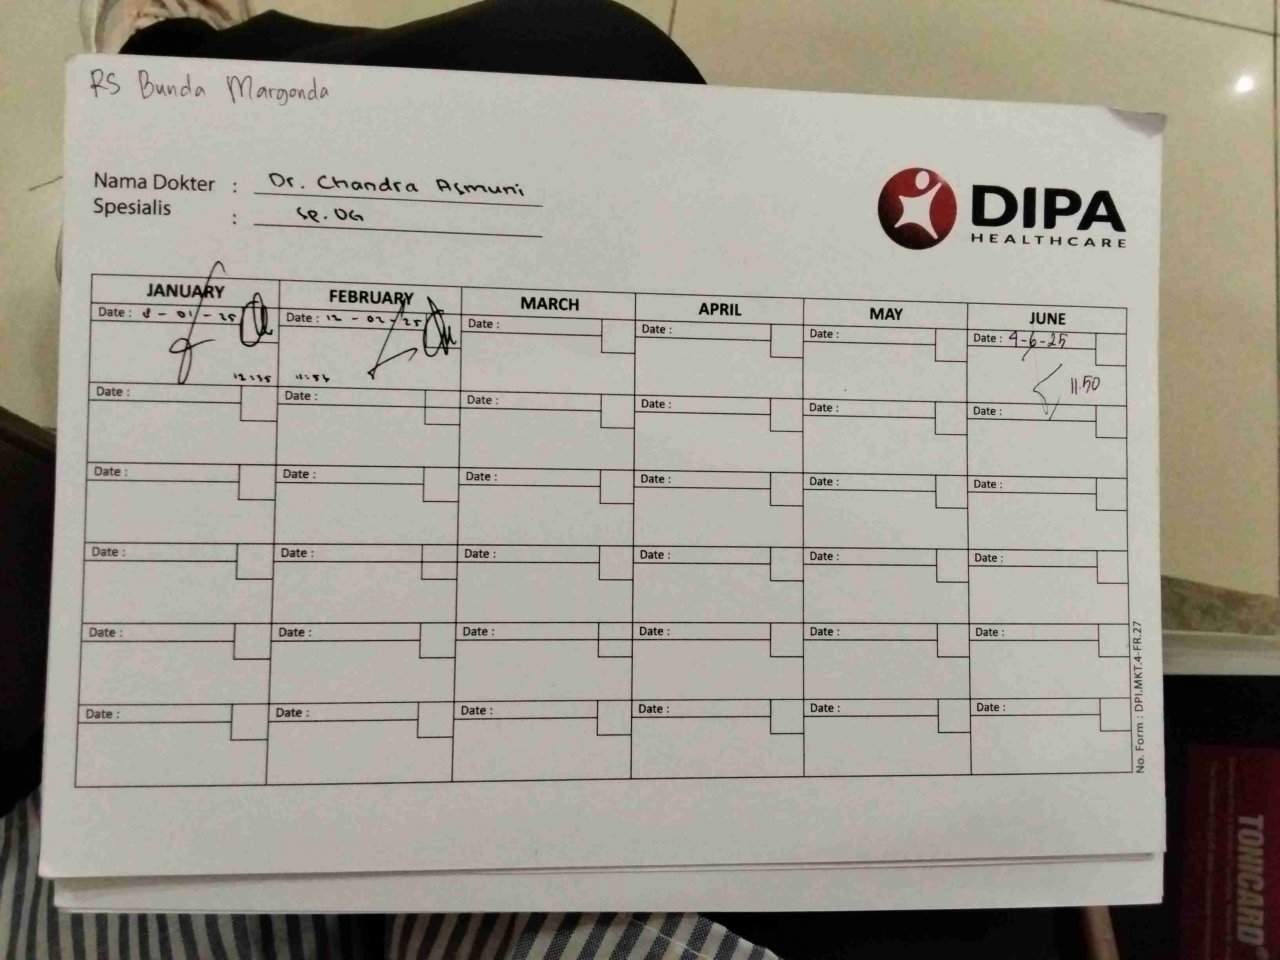 RS Bunda Margonda
Nama Dokter : Dr. Chandra Asmuni
Spesialis : SP. OG
DIPA
HEALTHCARE
JANUARY FEBRUARY MARCH APRIL MAY JUNE
Date : 8 - 01 - 25 Date : 12 - 02 - 25 Date : Date : Date : Date : 4-6-25
12:35 11:53 11.50
Date : Date : Date : Date : Date : Date :
Date : Date : Date : Date : Date : Date :
Date : Date : Date : Date : Date : Date :
Date : Date : Date : Date : Date : Date :
Date : Date : Date : Date : Date : Date :
No. Form : DPI.MKT.4-FR.27
TONICARD